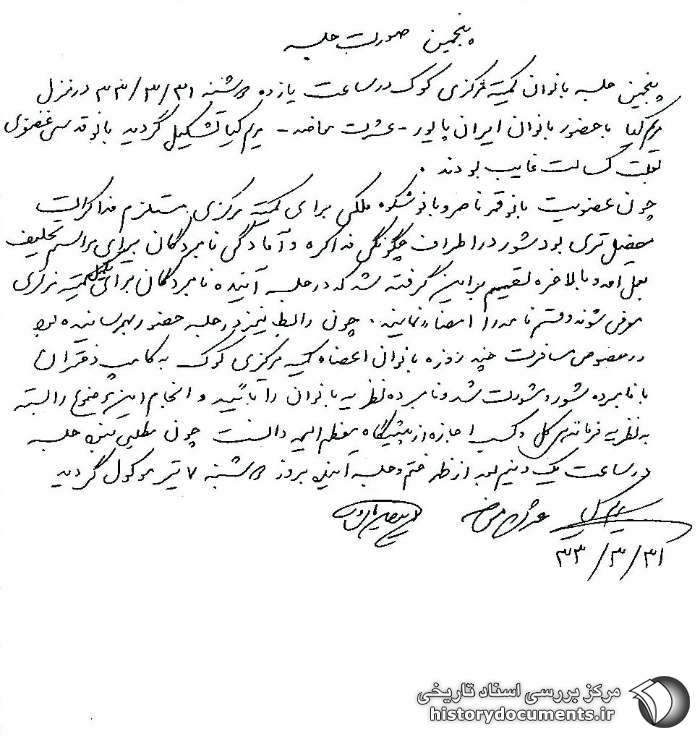 پنجمین صورت جلسه
پنجمین جلسه بانوان کمیته مرکزی کوک در ساعت یازده ۳شنبه ۳۳/۳/۳۱ در منزل
مریم کیا با حضور بانوان ایران پایور - عشرت - مریم کیا تشکیل گردید بانو قدسی غضنفری
بعلت کسالت غایب بودند .
چون عضویت بانو قمر ناصر و بانو شکوه ملکی برای کمیته مرکزی مستلزم مذاکرات
مفصل تری بود شور در اطراف چگونگی مذاکره و آمادگی نامبردگان برای مراسم تحلیف
بعمل آمد و بالاخره تصمیم بر این گرفته شد که در جلسه آینده نامبردگان برای تکمیل کمیته مرکزی
معرفی شوند و قسم نامه را امضاء نمایند . چون رابط نیز در جلسه حضور بهم رسانیده بود
در خصوص مسافرت چند روزه بانوان اعضاء کمیته مرکزی کوک به کامپ دختران
با نامبرده شور و مشورت شد و نامبرده نظریه بانوان را تأیید و انجام این موضوع را بسته
به نظریه فرماندهی کل و کسب اجازه از پیشگاه معظم الیه دانست چون مطلبی نبود جلسه
در ساعت یک و نیم بعد از ظهر ختم و جلسه آینده بروز ۳شنبه ۷ تیر موکول گردید
مریم کیا
۳۳/۳/۳۱
مرکز بررسی اسناد تاریخی
historydocuments.ir